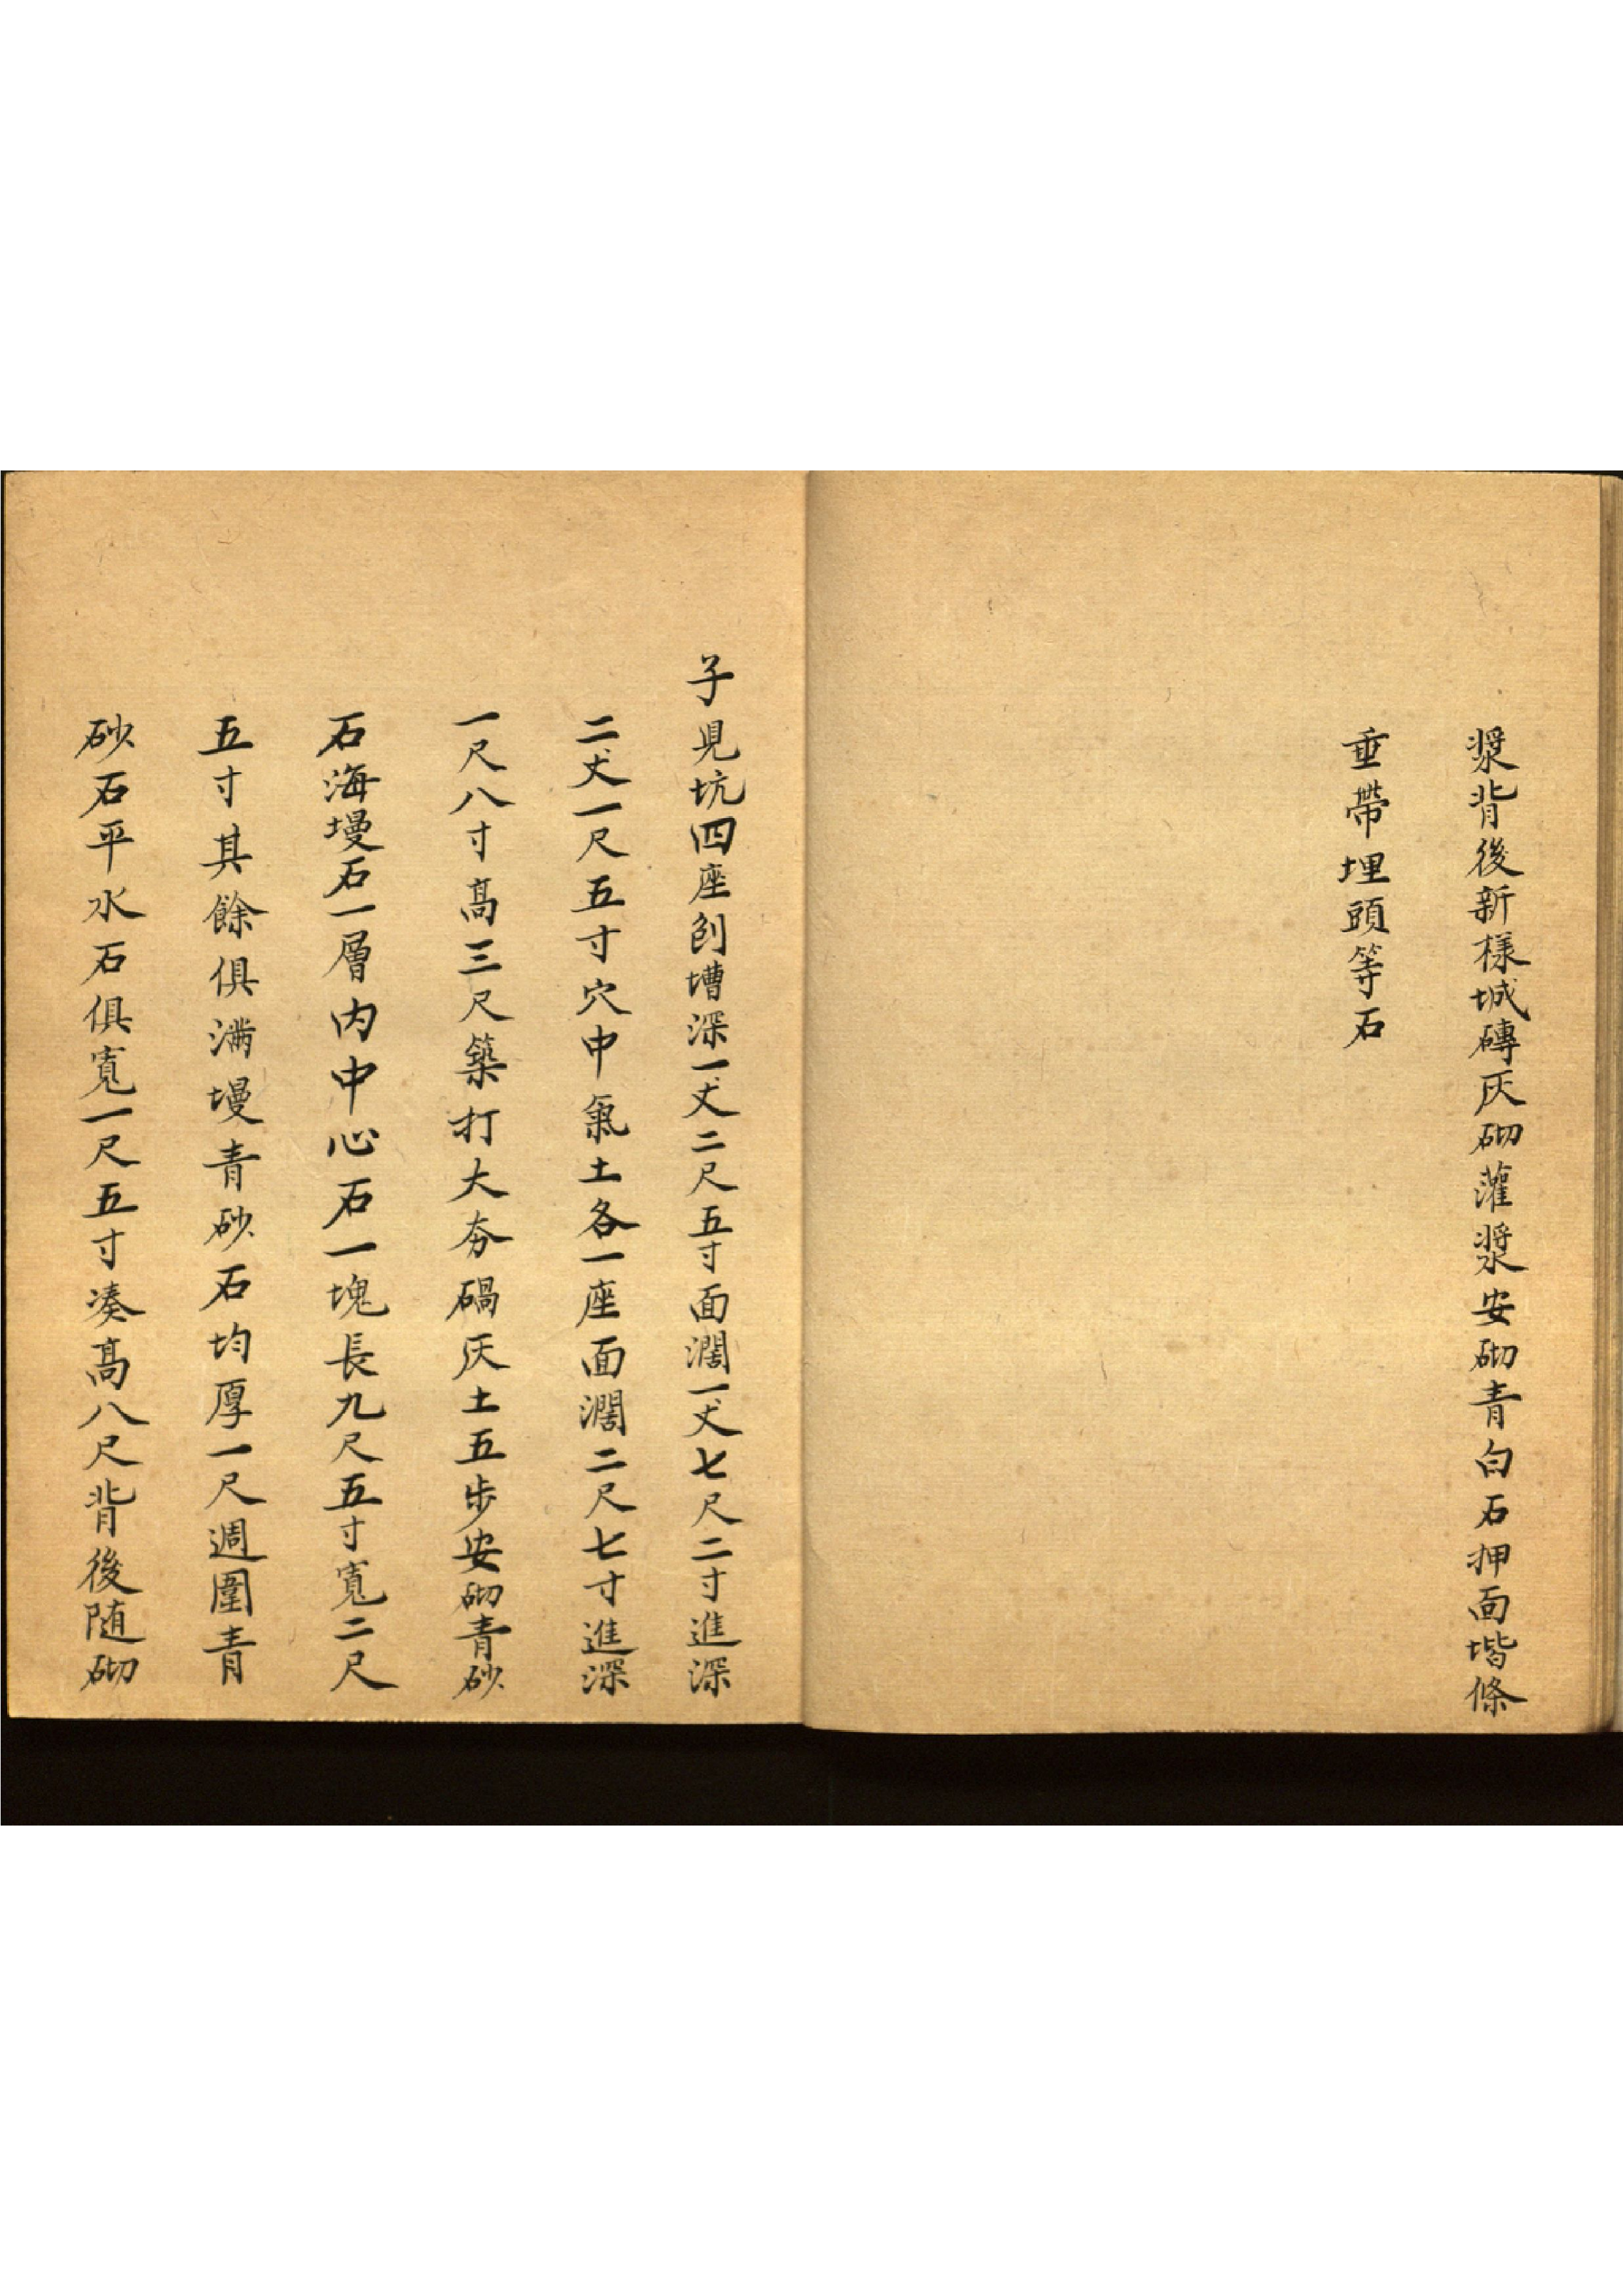 漿背後新樣城磚灰砌灌漿安砌青白石押面堦條
垂帶埋頭等石
子見坑四座刨槽深一丈二尺五寸面濶一丈七尺二寸進深
二丈一尺五寸穴中氣土各一座面濶二尺七寸進深
一尺八寸高三尺築打大夯碢灰土五步安砌青砂
石海墁石一層内中心石一塊長九尺五寸寬二尺
五寸其餘俱满墁青砂石均厚一尺週圍青
砂石平水石俱寬一尺五寸凑高八尺背後随砌